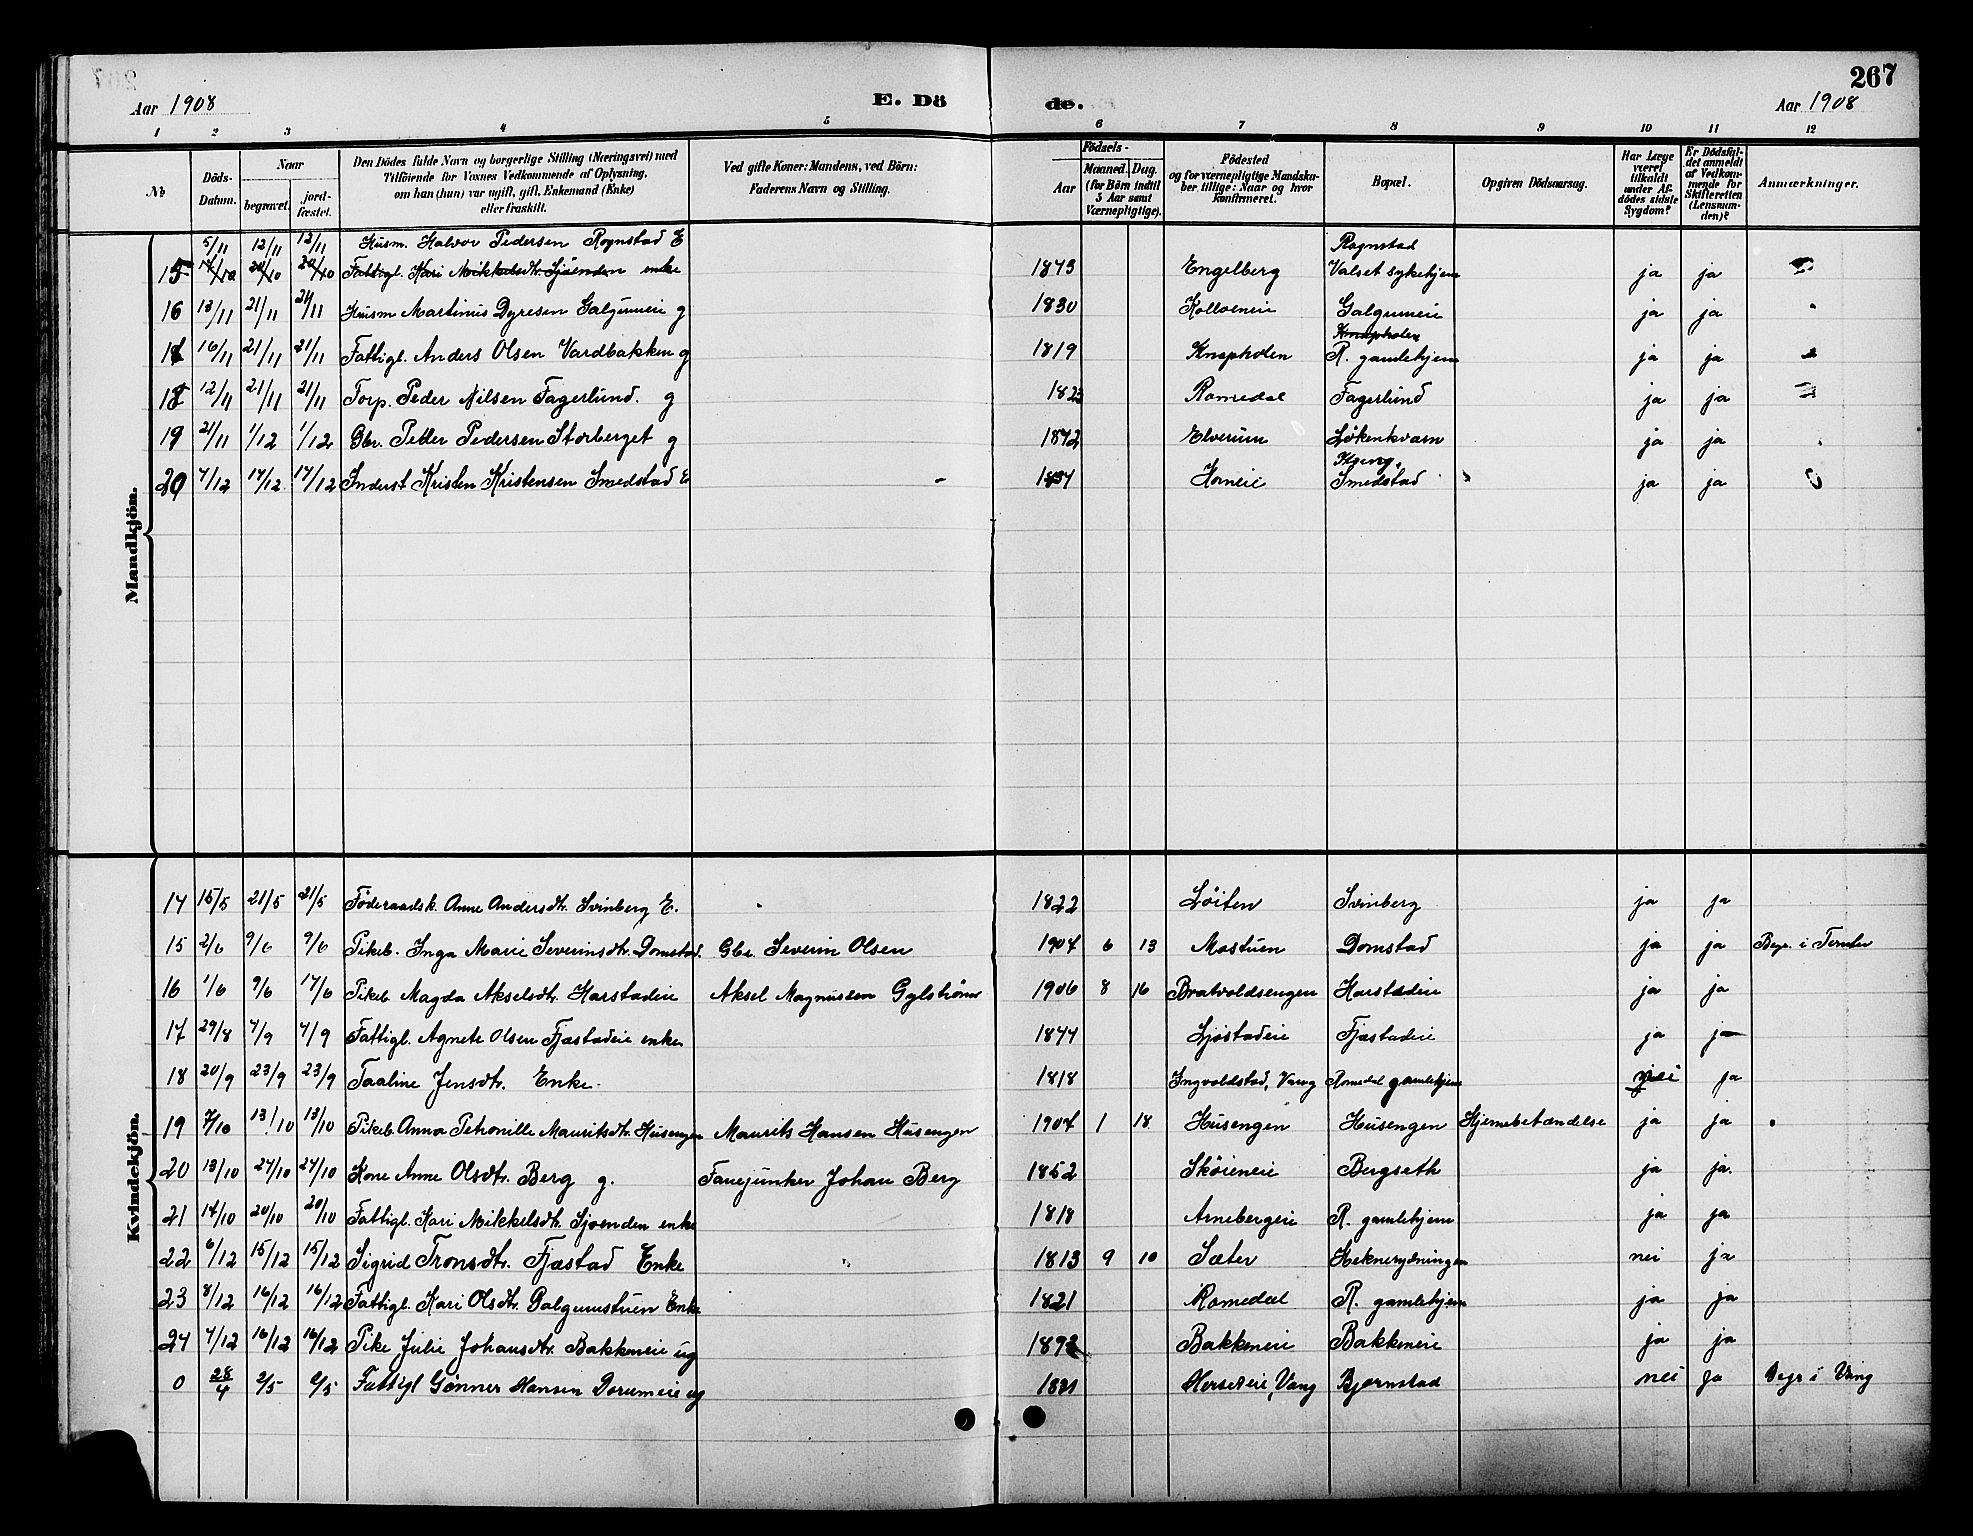 267
Aar 1908
E. Dö
de.
Aar 1908
1 2 3 4 5 6 7 8 9 10 11 12
No
Döds-Datum.
Naar
begravet.
jord-fæstet.
Den Dödes fulde Navn og borgerlige Stilling (Næringsvei) med
Tilföiende for Voxnes Vedkommende af Oplysning,
om han (hun) var ugift, gift, Enkemand (Enke)
eller fraskilt.
Ved gifte Koner: Mandens, ved Börn:
Faderens Navn og Stilling.
Födsels-
Aar
Maaned. Dag.
(for Börn indtil
5 Aar samt
Værnepligtige).
Födested
og for værnepligtige Mandska-
ber tillige: Naar og hvor
konfirmeret.
Bopæl.
Opgiven Dödsaarsag.
Har Læge
været
tilkaldt
under Af-
dödes sidste
Sygdom?
Er Dödsfal-
det anmeldt
af Vedkom-
mende for
Skifteretten
(Lensman-
den)?
Anmærkninger.
Mandkjön.
5/11 12/11 12/11 Husm. Halvor Pedersen Rognstad E Rognstad
15 14/10 20/10 20/10 Fattigl. Kari Mikkelsdtr. Sjøenden enke 1843 Engelberg Valset sykehjem ja ja
16 13/11 21/11 21/11 Husm Martinus Dyresen Galgumeie g 1830 Kolloeneie Galgumeie ja ja
Knapholen
16/11 21/11 21/11 Fattigl. Anders Olsen Vardbakken g 1819 Knapholen R. gamlehjem ja ja
18 12/11 21/11 21/11 Torp. Peder Nilsen Fagerlund. g 1823 Romedal Fagerlund ja ja
19 21/11 1/12 1/12 Gbr. Petter Pedersen Storberget g 1842 Elverum Løkenkværn ja ja
20 7/12 17/12 17/12 Inderst Kristen Kristensen Smedstad E Horneie Smedstad ja ja
Kvindekjön.
14 15/5 21/5 21/5 Føderaadsk. Anne Andersdtr. Svinberg E. 1822 Løiten Svinberg ja ja
15 2/6 9/6 9/6 Pikeb. Inga Marie Severinsdtr. Domstad. Gbr. Severin Olsen 1904 6 13 Mostuen Domstad ja ja Begr. i Tomter
16 1/6 9/6 17/6 Pikeb Magda Akselsdtr. Harstadeie Aksel Magnussen Gylstrøm 1906 8 16 Bratvoldsengen Harstadeie ja ja
17 29/8 4/9 4/9 Fattigl. Agnete Olsen Fjæstadeie enke 1844 Ljøstadeie Fjæstadeie ja ja
18 20/9 23/9 23/9 Taaline Jensdtr. Enke. 1818 Ingvoldstad, Vang Romedal gamlehjem nei ja
19 7/10 13/10 13/10 Pikeb. Anna Petronille Mauritsdtr. Husengen Maurits Hansen Husengen 1904 1 18 Husengen Husengen Hjernebetændelse ja ja
20 13/10 24/10 24/10 Kone Anne Olsdtr. Berg g. Fanejunker Johan Berg 1852 Skøieneie Bergseth ja ja.
21 14/10 20/10 20/10 Fattigl. Kari Mikkelsdtr. Sjøenden enke 1818 Arnebergeie R. gamlehjem ja ja
22 6/12 15/12 15/12 Sigrid Tronsdtr. Fjæstad Enke 1813 9 10 Sæter Heknerydningen nei ja
23 8/12 16/12 16/12 Fattigl. Kari Olsdtr. Galgumstuen Enke 1821 Romedal R. gamlehjem ja ja
24 7/12 16/12 16/12 Pike Julie Johansdtr. Bakkeneie ug Bakkeneie Bakkeneie ja ja
0 28/4 2/5 2/5 Fattigl Gønner Hansen Dorumeie ug Horseteie, Vang Bjørnstad nei ja Begr i Vang